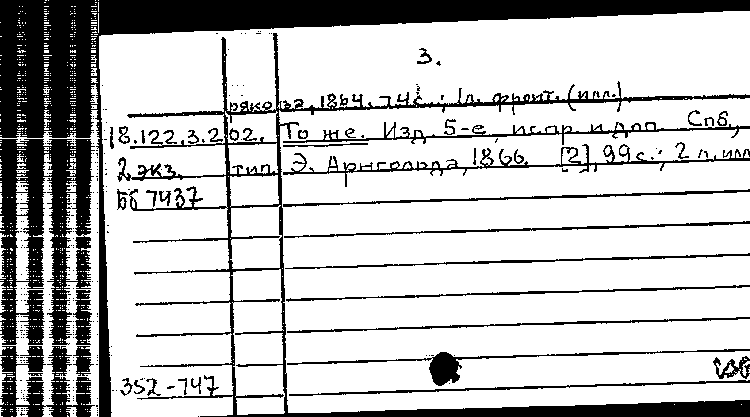 3.
рякова, 1864. 74с.; 1л. фронт. (илл.)
18.122.3.202. То же. Изд. 5-е, испр. и доп. Спб.,
2 экз. тип. Э. Арнгольда, 1866. [2], 99 с.; 2 л. илл
Бб 7437
352-747